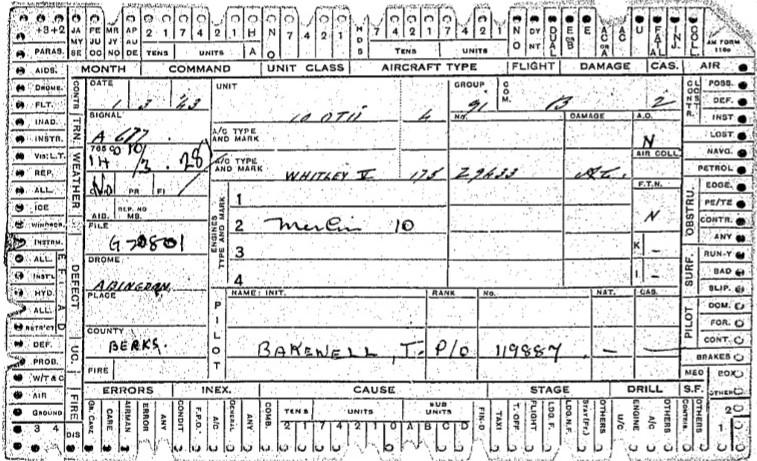 +3+2 JA MY SE FE JU OC MR JY NO AP AU DE 2 1 7 4 2 1 H A NO 7 4 2 1 HDS 7 4 2 1 7 4 2 1 NO DY NT DUAL E OR B E AC OR A AC U FATAL INJ. COLL AM FORM 1180
PARAS. TENS UNITS TENS UNITS
AIDS. MONTH COMMAND UNIT CLASS AIRCRAFT TYPE FLIGHT DAMAGE CAS. AIR
DROME. CONTR DATE UNIT GROUP COM. POSS.
FLT. 1 3 43 10 OTU 4 91 B 2 DEF.
INAD. TRN. SIGNAL A/C TYPE AND MARK No. DAMAGE A.O. INST
INSTR. A 677. N LOST.
VIS: L.T. WEATHER 1H /3. 28 A/C TYPE AND MARK AIR COLL NAVG.
REP. WHITLEY V 175 Z9433 PETROL
ALL. PR FI F.T.N. EDGE.
ICE AID. REP. NO MB. ENGINES TYPE AND MARK 1 OBSTRU. PE/TE
WINDSCR. FILE 2 Merlin 10 N CONTR.
INSTRM. G70801 3 K - ANY
ALL. DEFECT DROME 4 I - SURF. RUN-Y
INST'L ABINGDON BAD
HYD. PLACE PILOT NAME: INIT. RANK No. NAT. CAS. SLIP.
ALL. PILOT DOM.
RETR'CT COUNTY FOR.
DEF. UC. BERKS. BAKEWELL, T. P/O 119887 - CONT.
PROB. FIRE BRAKES
W/T & C ERRORS INEX. CAUSE STAGE DRILL S.F. MED POX
AIR FIRE GR. CARE CARE AIRMAN ERROR ANY CONDIT F.P.O. A/C GENERAL ANY COMB. TENS UNITS SUB UNITS FIN-O TAXI T. OFF FLIGHT LDG. F. LDG. N.F. STAT(FT.) OTHERS U/C ENGINE A/C OTHERS CONTRIN. OTHERS OTHER
GROUND 2 1 7 4 2 1 0 A B C D 2
3 4 DIS 1